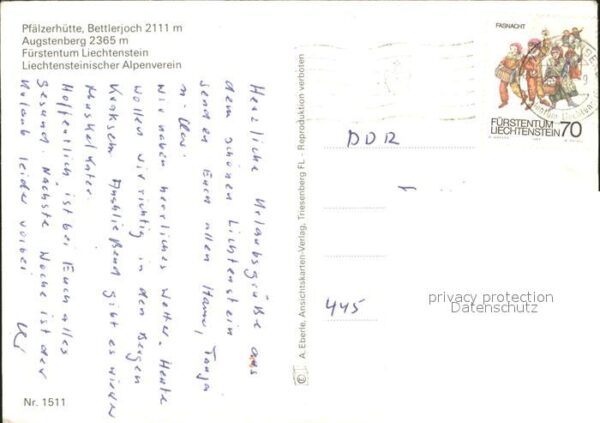 Pfälzerhütte, Bettlerjoch 2111 m
Augstenberg 2365 m
Fürstentum Liechtenstein
Liechtensteinischer Alpenverein
Herzliche Urlaubsgrüße aus
dem schönen Lichtenstein
senden Euch allen Hanni, Tanja
Wir haben herrliches Wetter. Heute
wollen wir richtig in den Bergen
Kraxseln. Anschließend gibt es wieder
Muskelkater.
Hoffentlich ist bei Euch alles
gesund. Nächste Woche ist der
Urlaub leider vorbei
Nr. 1511
© A. Eberle, Ansichtskarten-Verlag, Triesenberg FL - Reproduktion verboten
FASNACHT
FÜRSTENTUM
LIECHTENSTEIN 70
DDR
445
privacy protection
Datenschutz